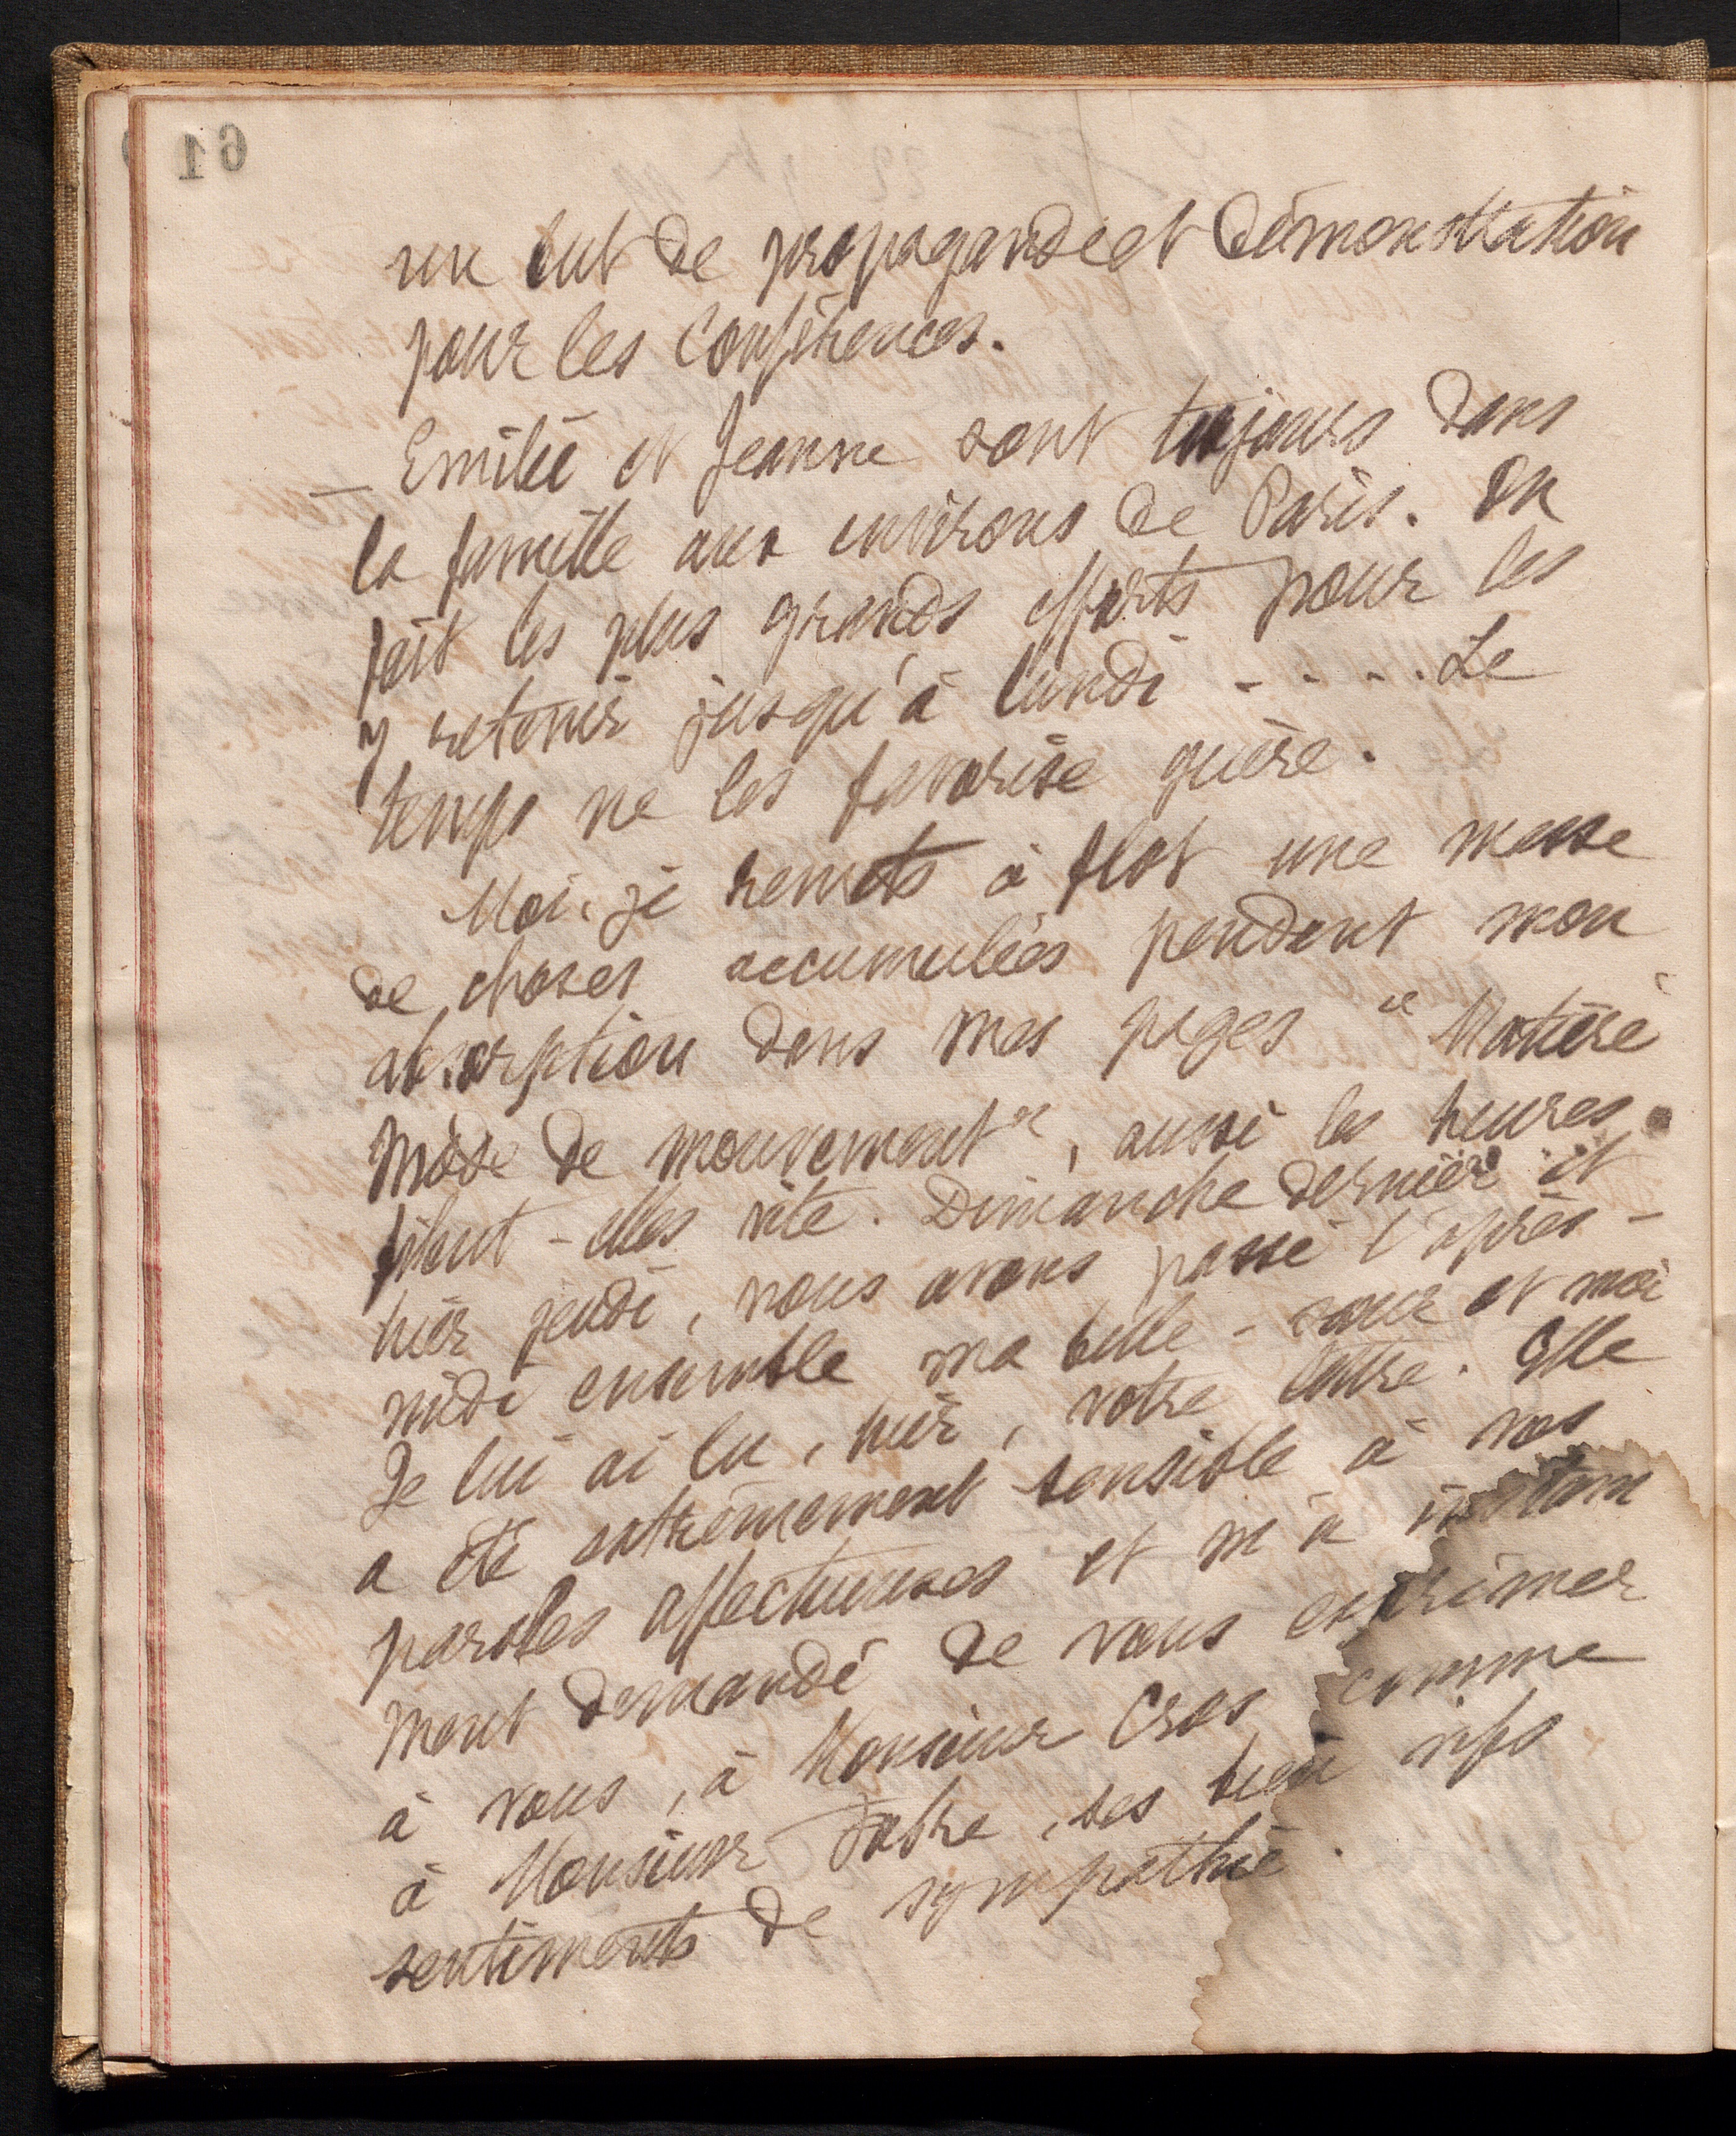 61
un but de propagande et démonstration
pour les Conférences.
— Emilie et Jeanne sont toujours dans
la famille aux environs de Paris. On
fait les plus grands efforts pour les
y retenir jusqu'à lundi - - - . Le
temps ne les favorise guère.
Moi, je remets à flot une masse
de choses accumulées pendant mon
absorption dans mes pages "Matière
Mode de mouvement", aussi les heures
filent-elles vite. Dimanche dernier et
hier jeudi, nous avons passé l'après-
midi ensemble ma belle-sœur et moi
Je lui ai lu, hier, votre lettre. Elle
a été extrêmement sensible à vos
paroles affectueuses et m'a instam
ment demandé de vous exprimer
à vous, à Monsieur Cros comme
à Monsieur Fabre, ses bien vifs
sentiments de sympathie.